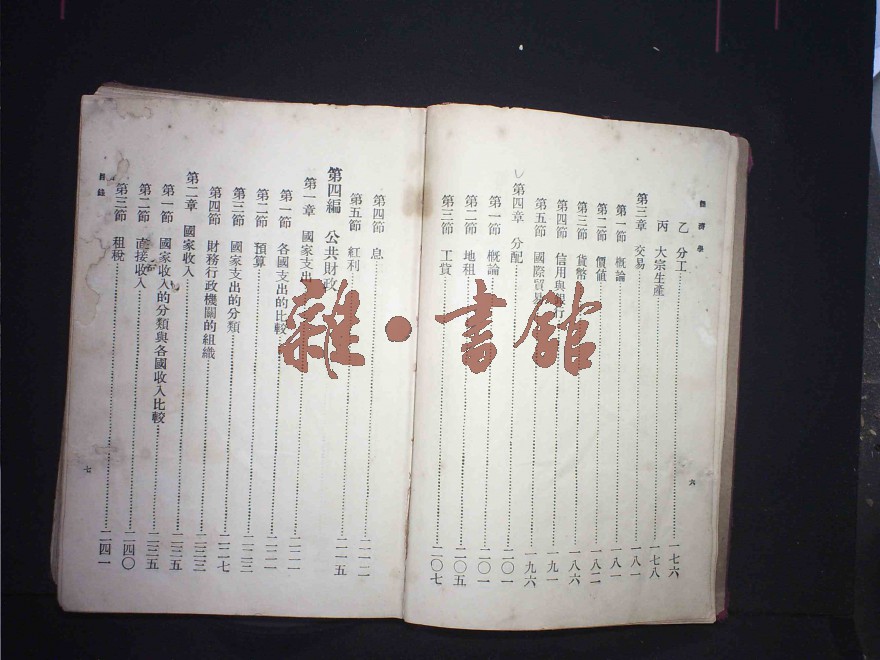 經濟學
乙 分工……一七六
丙 大宗生產……一七八
第三章 交易……一八一
第一節 概論……一八一
第二節 價值……一八二
第三節 貨幣……一八六
第四節 信用與銀行……一九一
第五節 國際貿易……一九六
第四章 分配……二〇一
第一節 概論……二〇一
第二節 地租……二〇五
第三節 工資……二〇七
六
第四節 息……二一二
第五節 紅利……二一五
第四編 公共財政
第一章 國家支出……二二一
第一節 各國支出的比較……二二一
第二節 預算……二二二
第三節 國家支出的分類……二二三
第四節 財務行政機關的組織……二二七
第二章 國家收入……二三三
第一節 國家收入的分類與各國收入比較……二三五
第二節 直接收入……二四〇
第三節 租稅……二四一
目錄
七
雜·書館